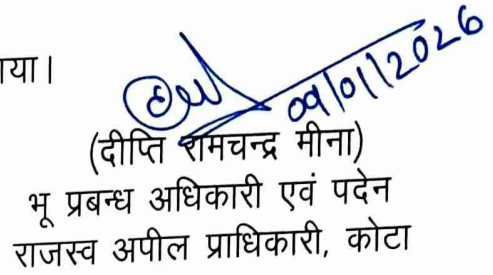 या।
09/01/2026
(दीप्ति रामचन्द्र मीना)
भू प्रबन्ध अधिकारी एवं पदेन
राजस्व अपील प्राधिकारी, कोटा